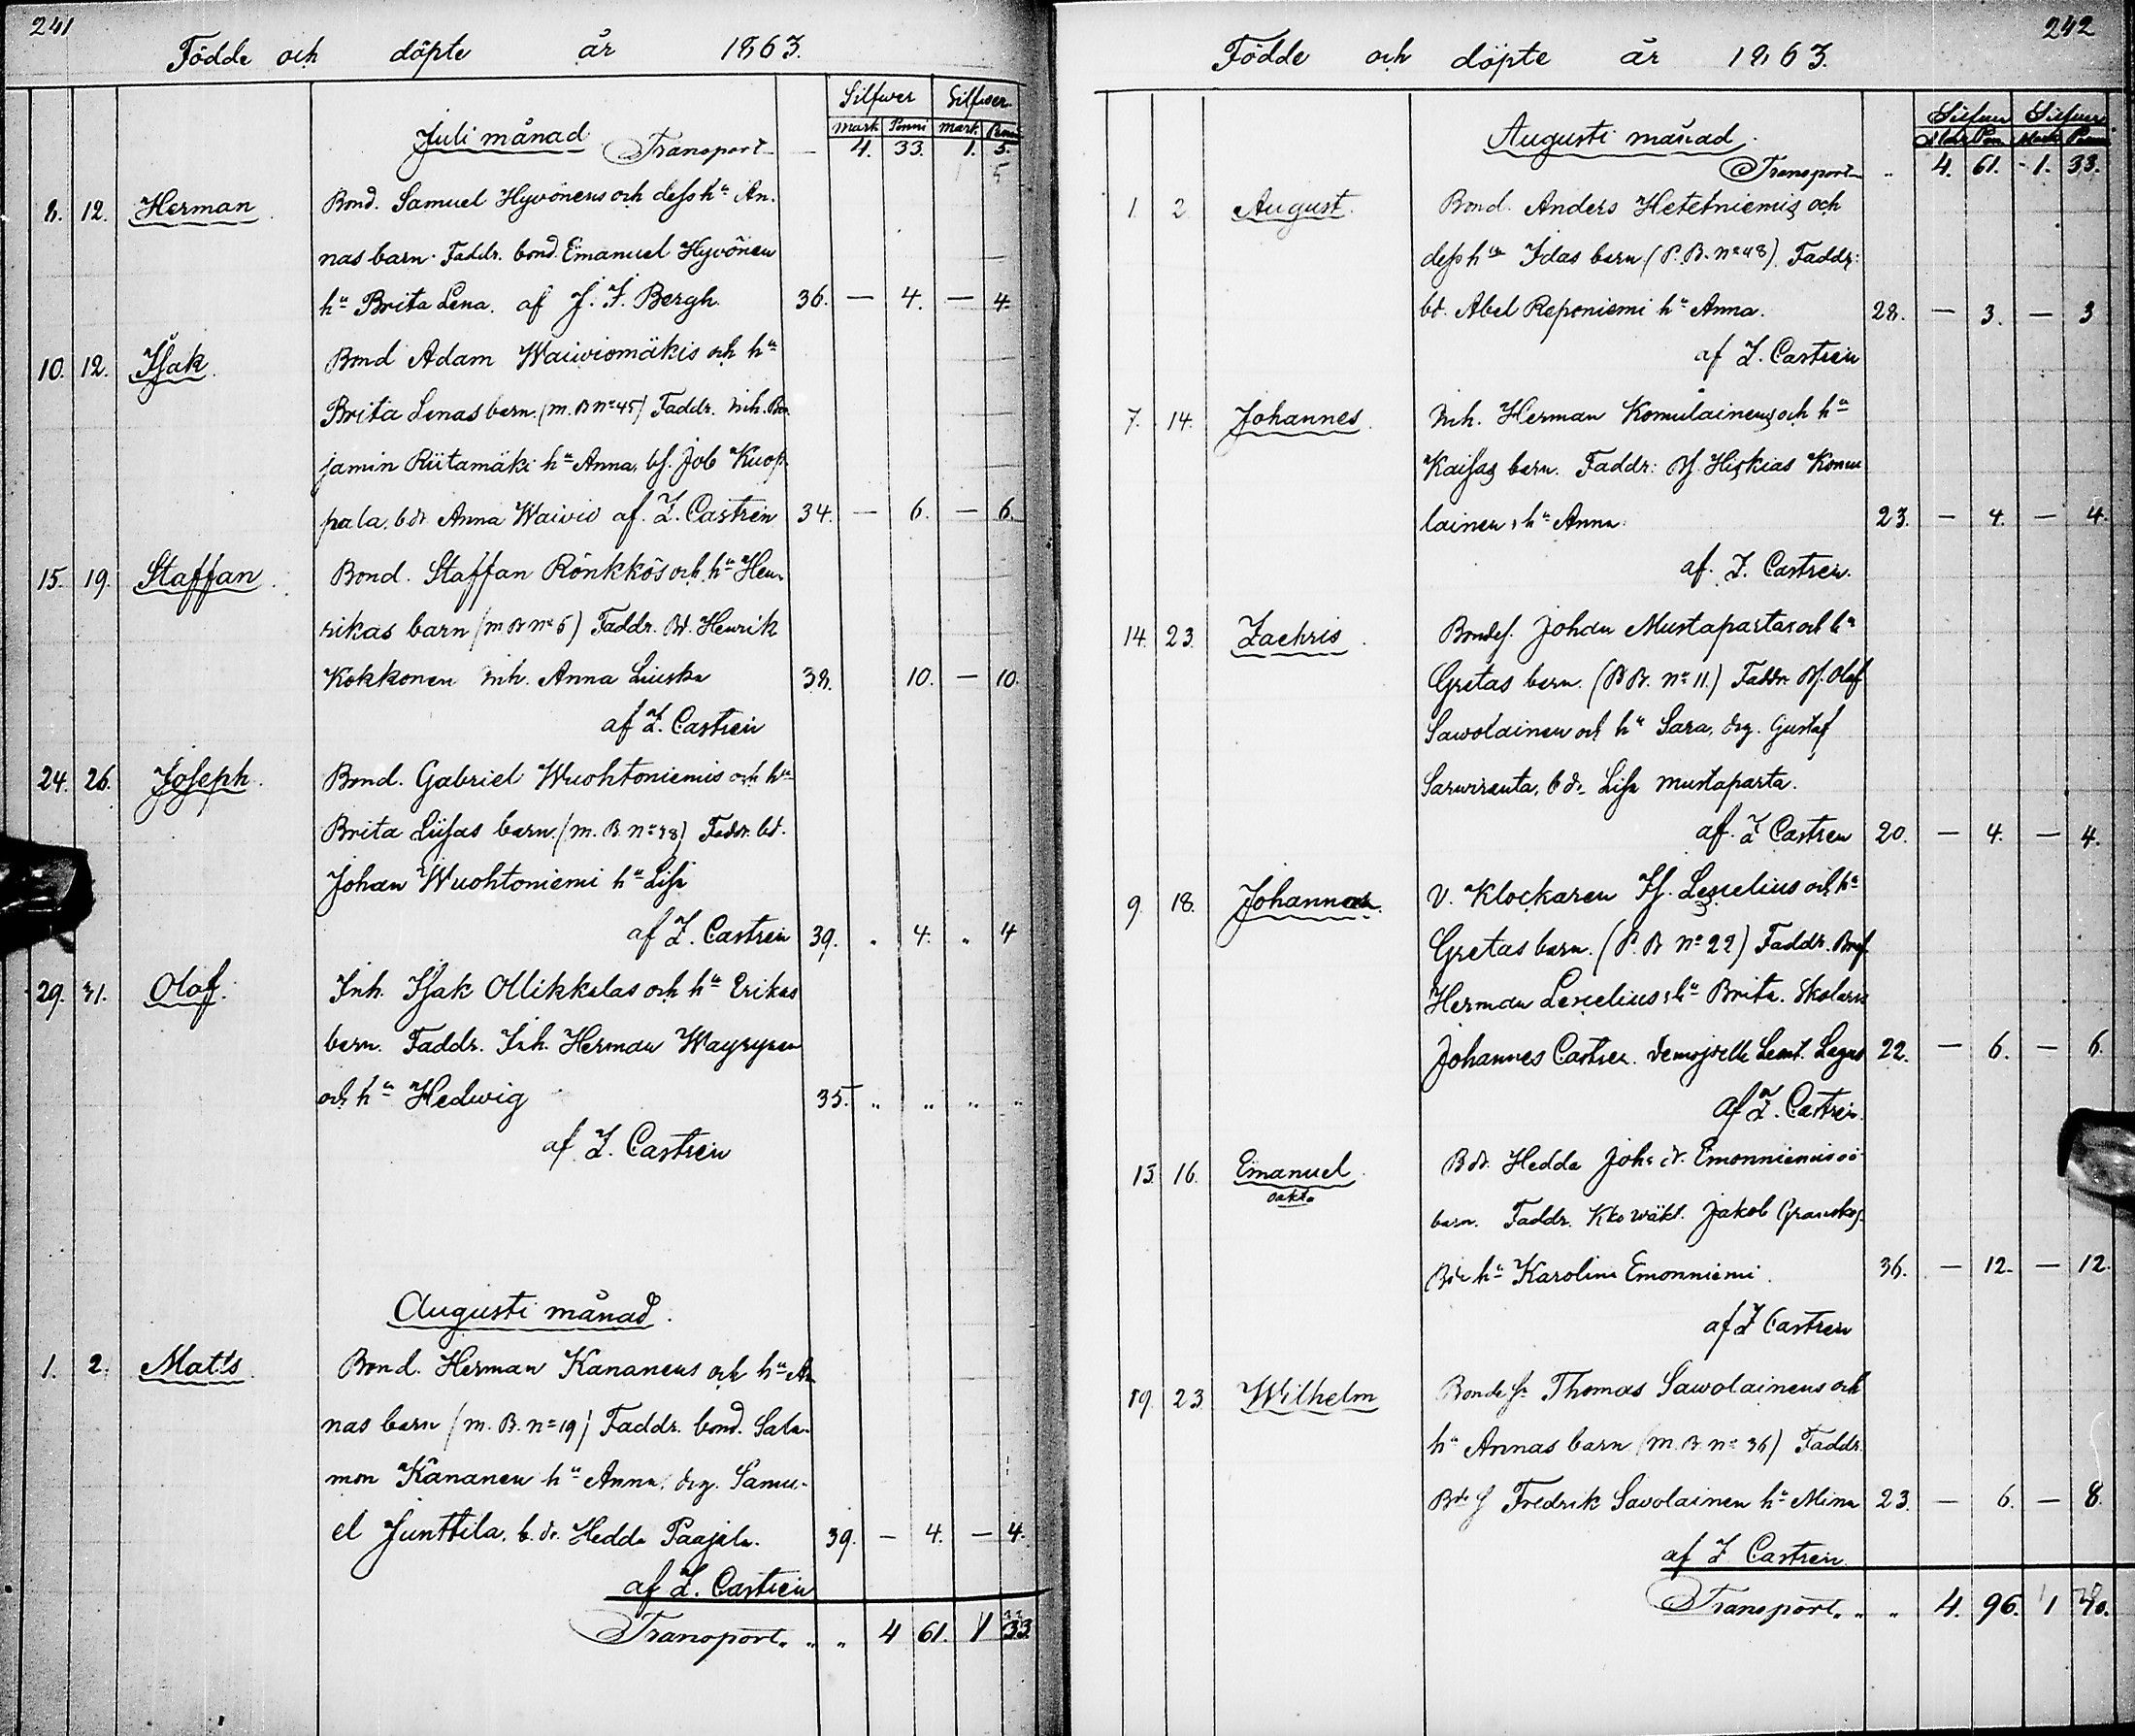 241
Födde och döpte år 1863.
Silfwer Silfwer
Mark Penni Mark Penni
Juli månad Transport — 4. 33. 1. 5.
8. 12. Herman Bond. Samuel Hyvönens och dess hu An-
nas barn. Faddr. bond. Emanuel Hyvönen
hu Brita Lena. af J. F. Bergh. 36. — 4. — 4.
10. 12. Isak Bond Adam Waiwiomäkis och hu
Brita Lenas barn. (M. B No 45) Faddr. Inh. Ben
jamin Riitamäki hu Anna, bs. Job Kuop-
pala. bdr Anna Waivio af. Z. Castrén 34. — 6. — 6.
15. 19. Staffan Bond. Staffan Rönkkös och hu Hen-
rikas barn (M B No 6) Faddr. Bd. Henrik
Kokkonen Inh. Anna Liuska 38. 10. — 10.
af Z. Castrén
24. 26. Joseph Bond. Gabriel Wuohtoniemis och hu
Brita Liisas barn. (M. B. No 38) Faddr. bd.
Johan Wuohtoniemi hu Lisa
af Z. Castrén 39. " 4. " 4
29. 31. Olof Inh. Isak Ollikkalas och hu Erikas
barn. Faddr. Inh. Herman Wäyrynen
och hu Hedwig 35. " " " "
af. Z. Castrén
Augusti månad.
1. 2. Matts Bond. Herman Kananens och hu An
nas barn (M. B. No 19) Faddr. bond. Salo-
mon Kananen hu Anna, drg. Samu-
el Junttila, b. dr. Hedda Paajala. 39. — 4. — 4.
af Z. Castrén
Transport " " " 4 61. 1 33.
242
Födde och döpte år 1863.
Silfwer Silfwer
Mark Pen Mark Penni
Augusti månad.
Transport " 4. 61. 1. 33.
1. 2 August. Bond. Anders Hetetniemis och
dess hu Idas barn. (P. B. No 48). Faddr:
bd. Abel Reponiemi hu Anna. 28. — 3. — 3
af Z. Castrén
7. 14. Johannes Inh. Herman Komulainens och hu
Kaisas barn. Faddr: Bs. Hiskias Komu
lainen, hu Anna. 23. — 4. — 4.
af. Z. Castren.
14. 23. Zachris Bondes. Johan Mustapartas och hu
Gretas barn. (B B. No 11.) Faddr. Bs. Olof
Sawolainen och hu Sara, drg. Gustaf
Sarwiranta, b dr Lisa Mustaparta.
af. Z Castren 20. — 4. — 4.
9. 18. Johannes V. Klockaren Is. Lexelius och hu
Gretas barn. (P. B No 22) Faddr.
Herman Lexelius, hu Brita. Skolaren
Johannes Castren. demoiselle 22. — 6. — 6.
af Z. Castren.
13. 16. Emanuel Bdr. Hedda Johs dr. Emonniemis oä
oäkta
barn. Faddr. Kko wäkt. Jakob
hu Karolina Emonniemi. 36. — 12. — 12.
af Z Castren
19. 23 Wilhelm Bondes. Thomas Sawolainens och
hu Annas barn (M. B. No 36) Faddr.
Fredrik Savolainen hu Mina 23. — 6. — 8.
af Z Castren.
Transport " " 4. 96. 1